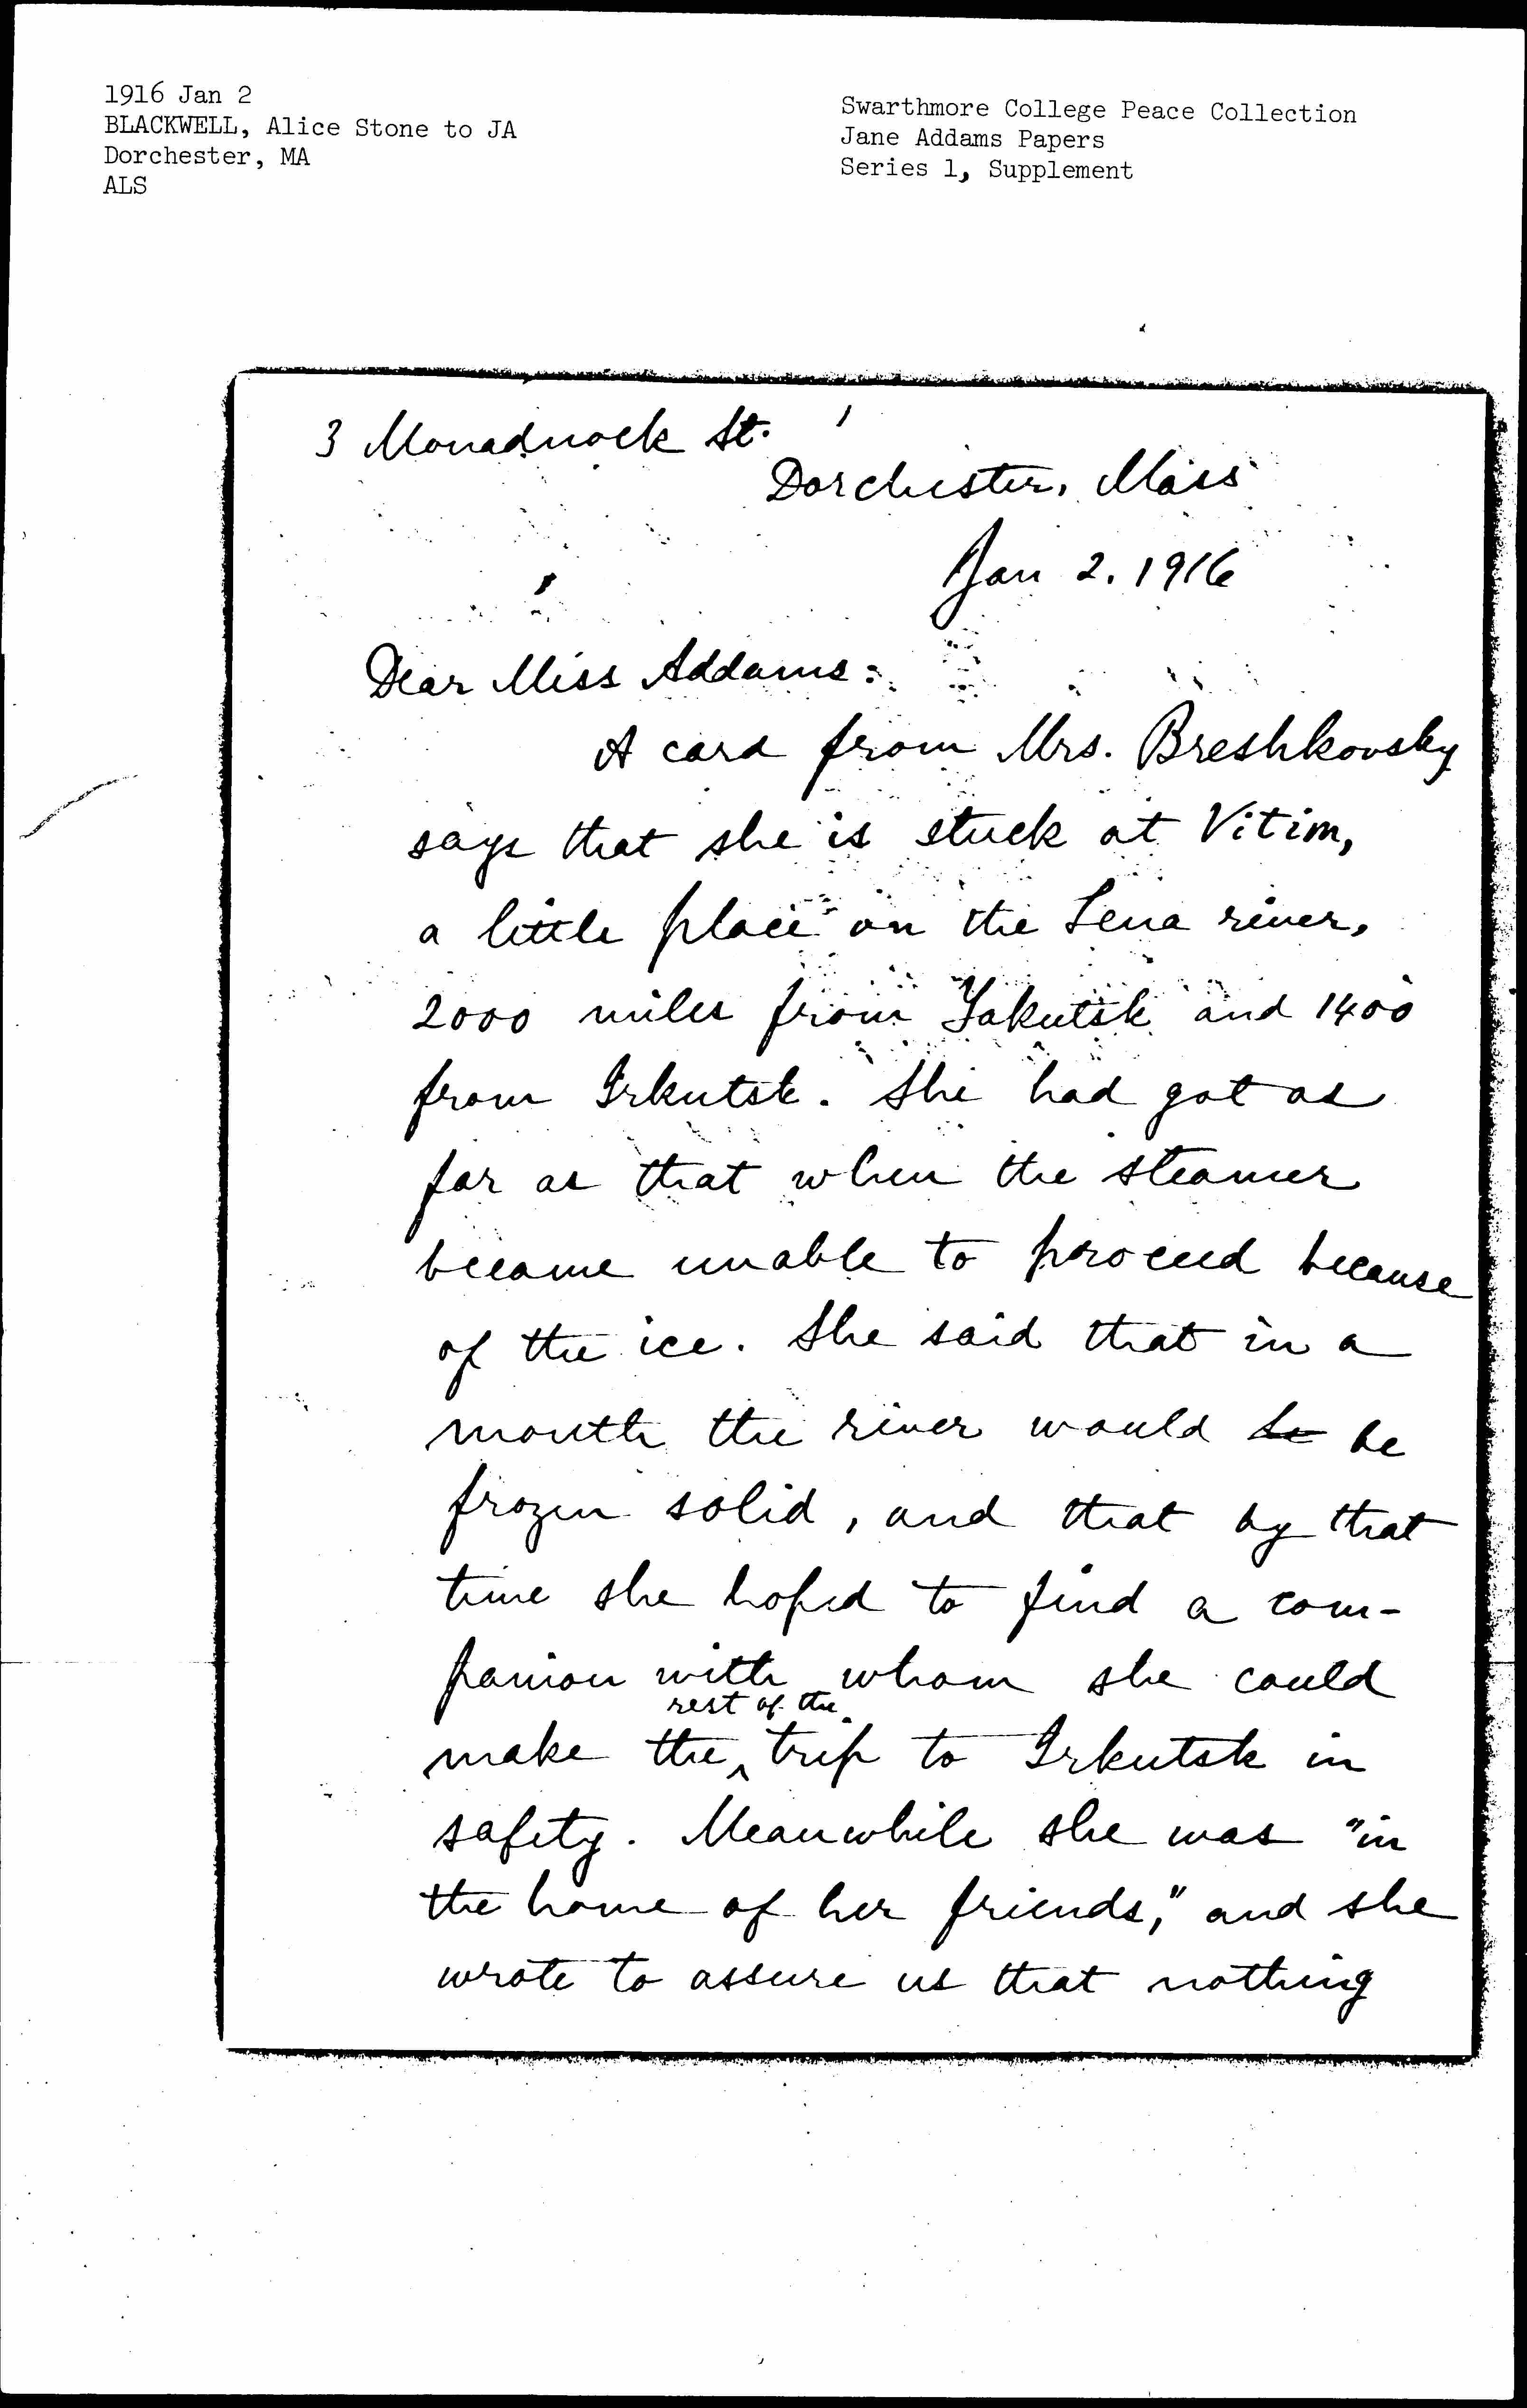 1916 Jan 2
BLACKWELL, Alice Stone to JA
Dorchester, MA
ALS
Swarthmore College Peace Collection
Jane Addams Papers
Series 1, Supplement
3 Monadnock St.
Dorchester, Mass
Jan 2. 1916
Dear Miss Addams:
A card from Mrs. Breshkovsky
says that she is stuck at Vitim,
a little place on the Lena river,
2000 miles from Yakutsk and 1400
from Irkutsk. She had got as
far as that when the steamer
became unable to proceed because
of the ice. She said that in a
month the river would be be
frozen solid, and that by that
time she hoped to find a com-
panion with whom she could
rest of the
make the ‸ trip to Irkutsk in
safety. Meanwhile she was "in
the home of her friends," and she
wrote to assure us that nothing